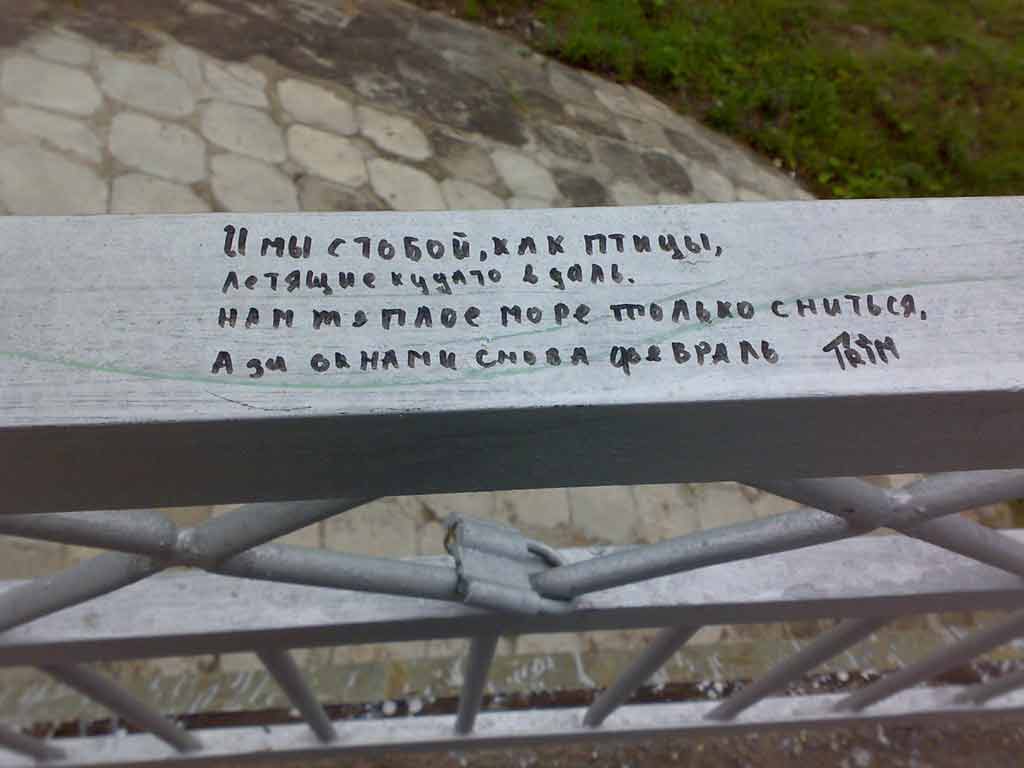 И мы с тобой, как птицы,
летящие кудато в даль.
нам тяплое море только сниться,
А за окнами снова февраль